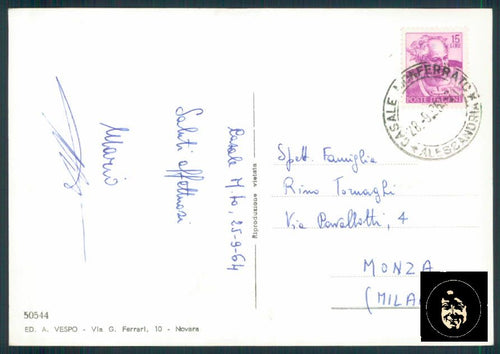 15
LIRE
POSTE ITALIANE
CASALE MONFERRATO
ALESSANDRIA
Casale M.to, 25-9-64
Saluti affettuosi
Mario
Spett. Famiglia
Rino Tornaghi
Via Cavallotti, 4
MONZA
(MILA
Riproduzione vietata
50544
ED. A. VESPO - Via G. Ferrari, 10 - Novara